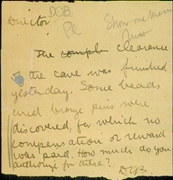 D.C.B.
Director. Show me the
Pl
The comple clearance
of the cave was finished
yesterday. Some beads
and bronze pins were
discovered, for which no
compensation or reward
was paid. How much do you
authorize for these?